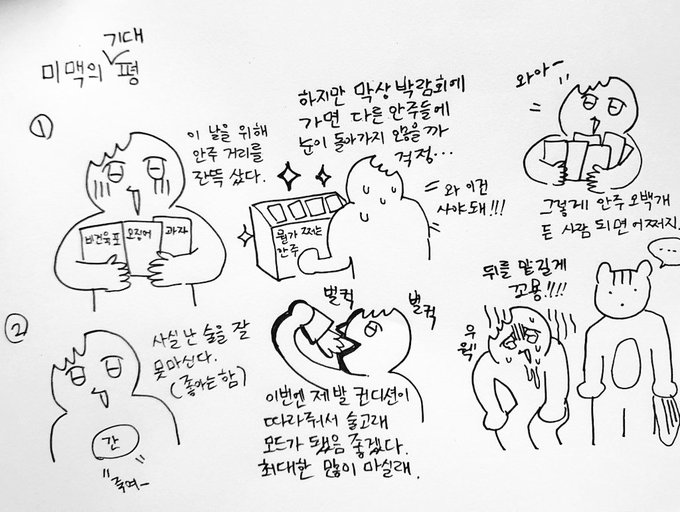 기대
미맥의 평
①
이 날을 위해
안주 거리를
잔뜩 샀다.
바건육포
오징어
과자
하지만 막상 박람회에
가면 다른 안주들에
눈이 돌아가지 않을까
걱정...
뭔가 쩌는
안주
와 이건
사야돼!!!
와아-
그렇게 안주 오백개
든 사람 되면 어쩌지.
②
사실 난 술을 잘
못마신다.
(좋아는 함)
간
"죽여-"
벌컥
벌컥
이번엔 제발 컨디션이
따라줘서 술고래
모드가 됐음 좋겠다.
최대한 많이 마실래.
뒤를 맡길게
꼬묭!!!!
우웩
...